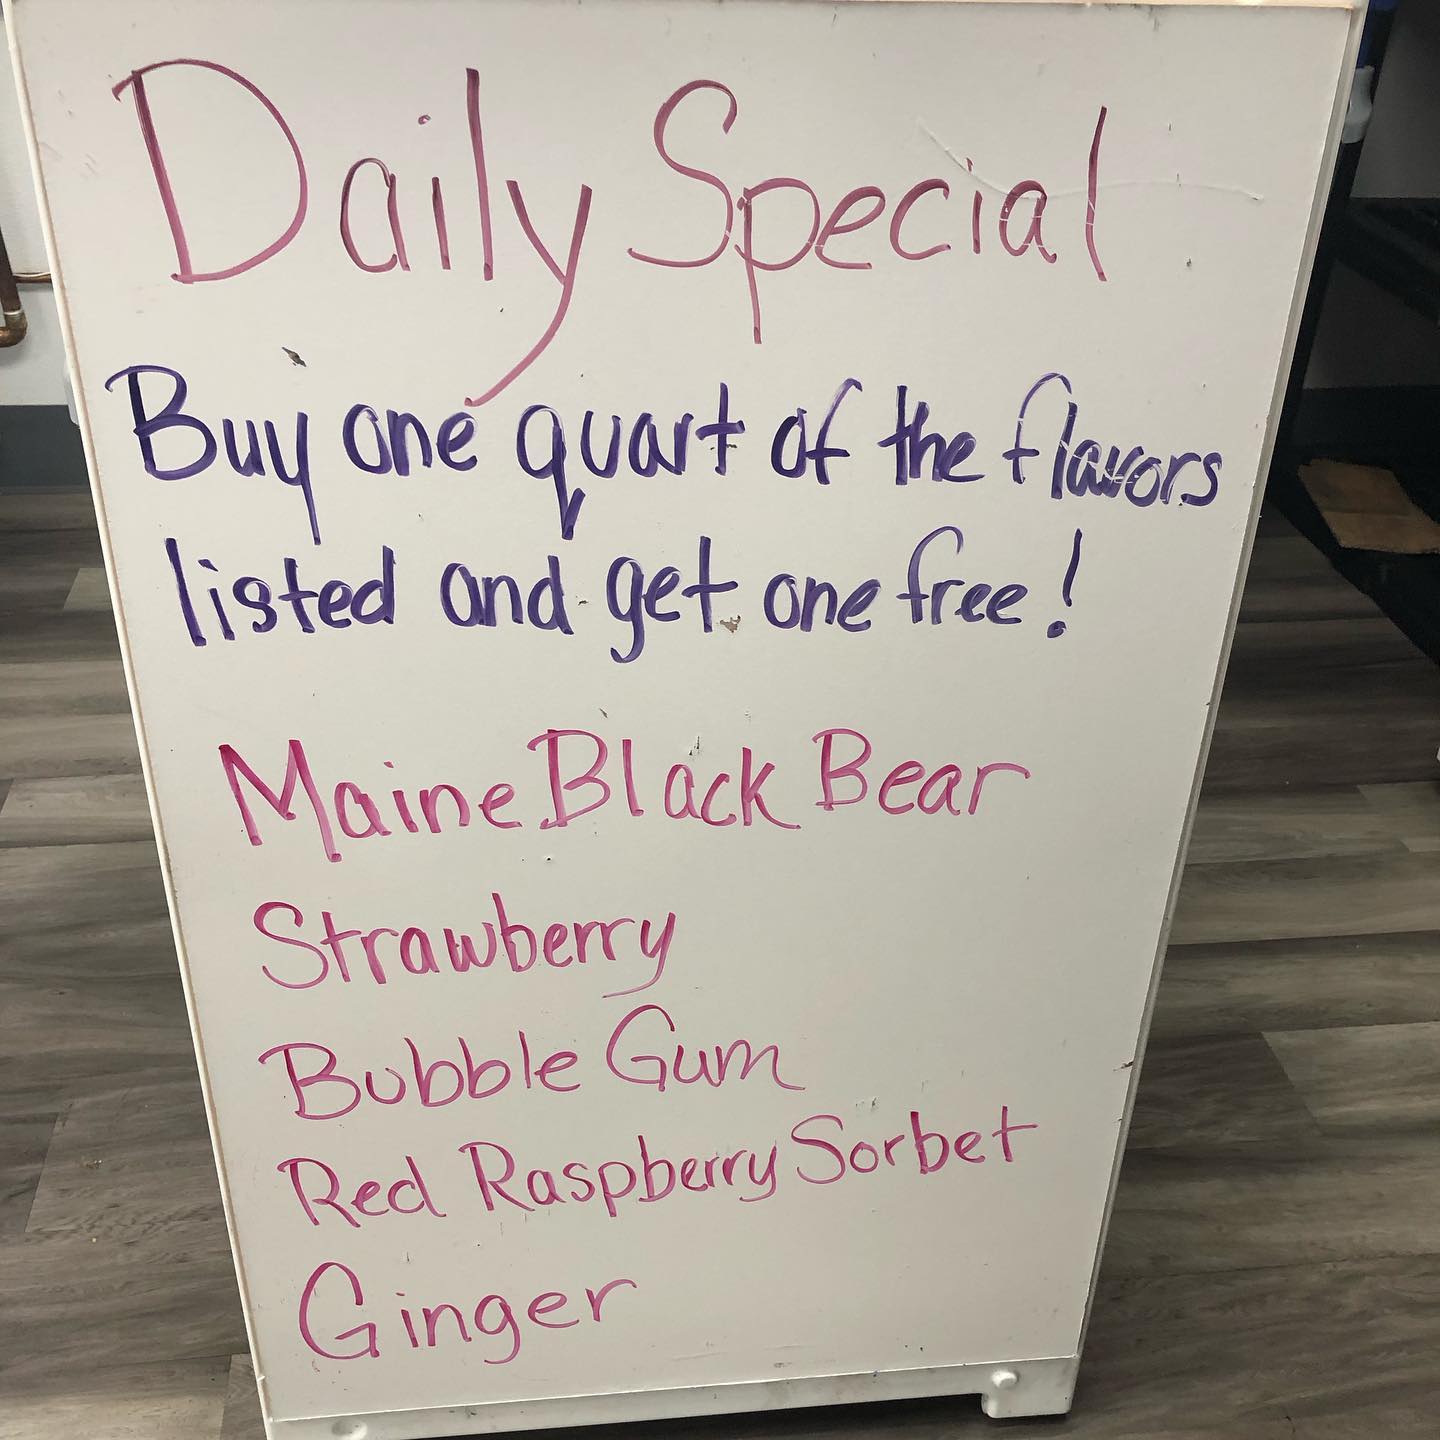 Daily Special
Buy one quart of the flavors
listed and get one free!
Maine Black Bear
Strawberry
Bubble Gum
Red Raspberry Sorbet
Ginger